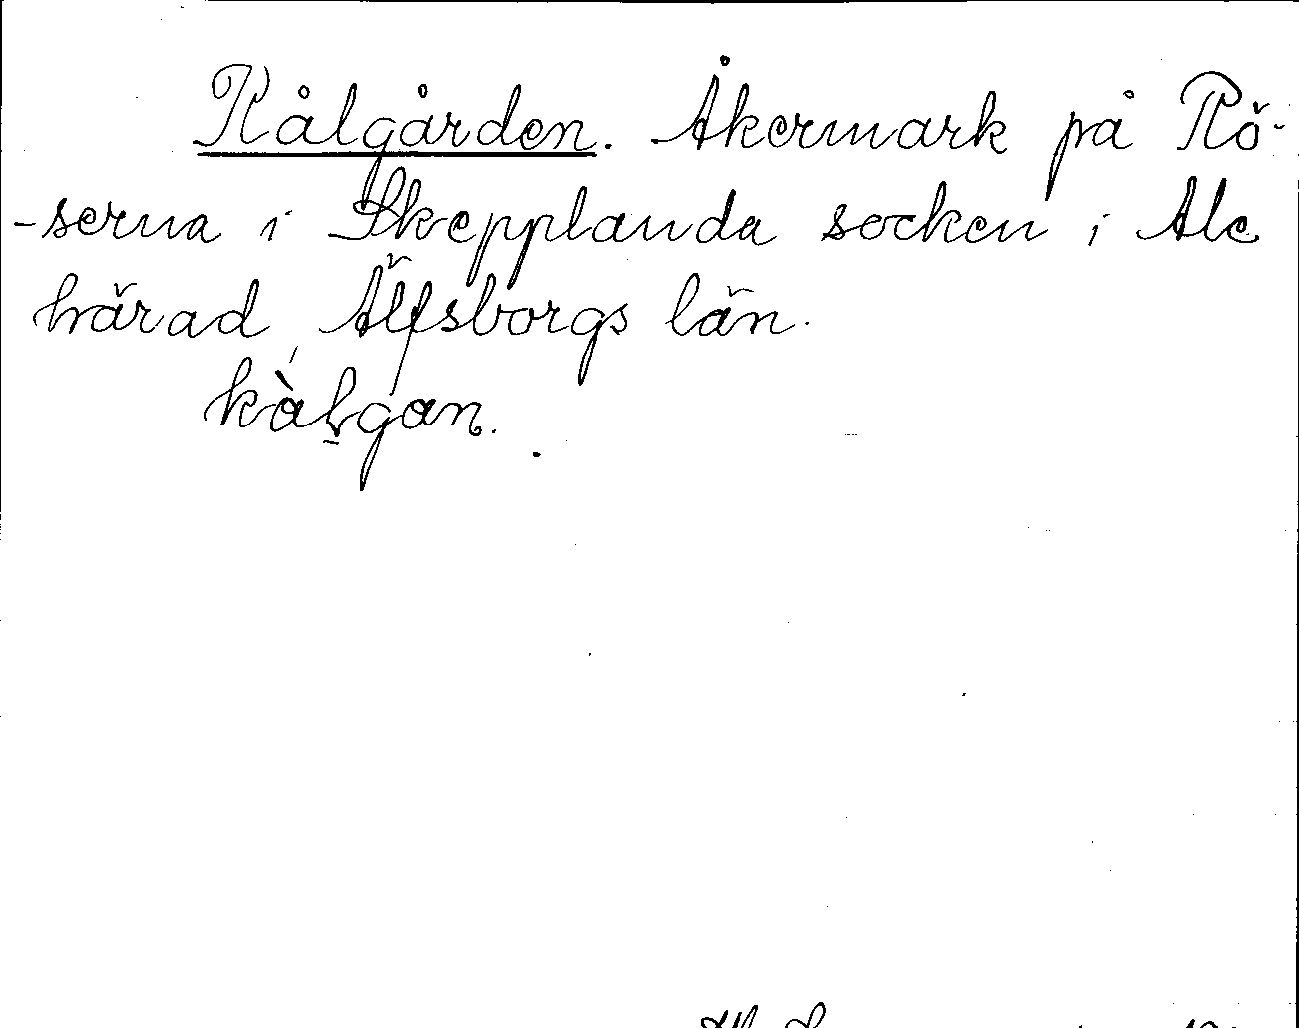 Kålgården. Åkermark på Rö-
-serna i Skepplanda socken i Ale
härad, Älfsborgs län.
kàlgan.